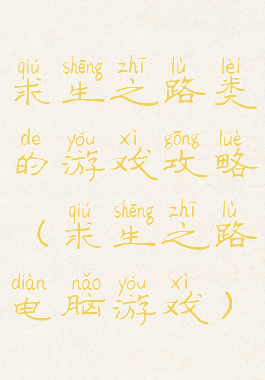 qiú shēng zhī lù lèi
求生之路类
de yóu xì gōng lüè
的游戏攻略
qiú shēng zhī lù
(求生之路
diàn nǎo yóu xì
电脑游戏)